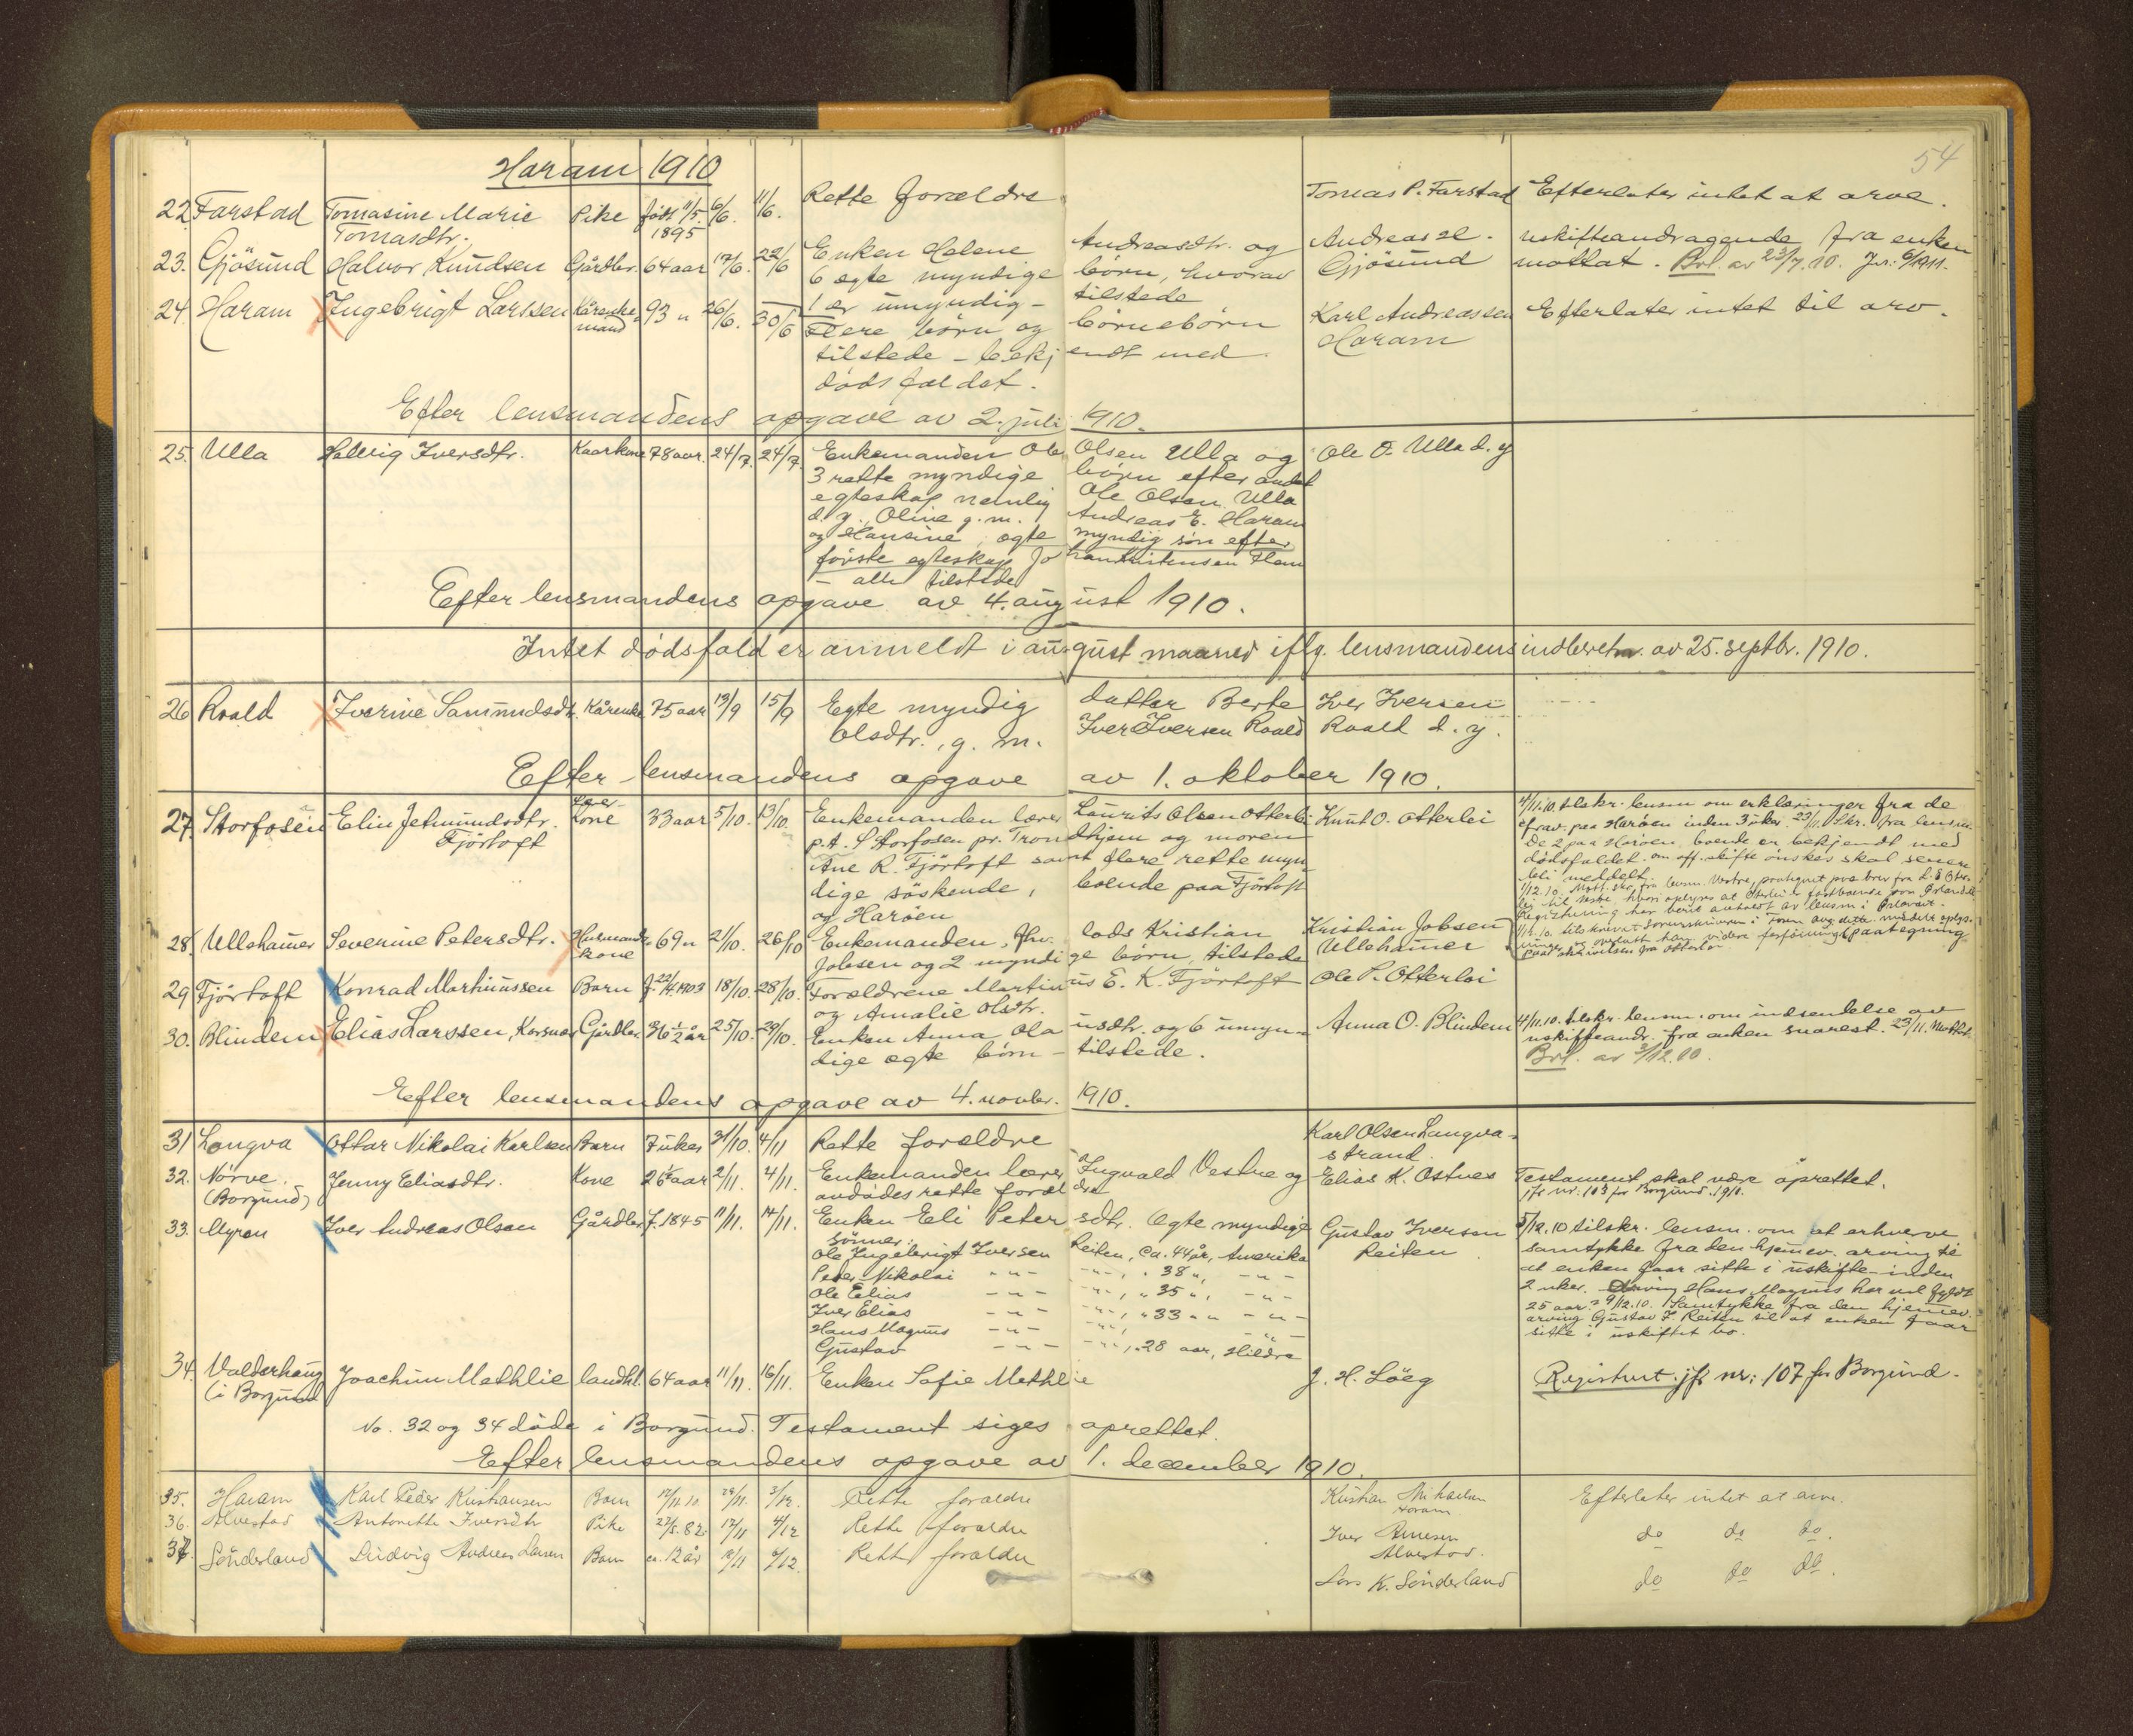 54
Haram 1910
22. Farstad Tomasine Marie Pike född 11/5. 6/6. 11/6. Rette forældre Tomas P. Farstad Efterlater intet at arve.
Tomasdtr. 1895
23. Gjösund Halvor Knudsen Gårdbr. 64 aar 17/6. 22/6 Enken Helene Andreasdtr. og Andreas H. Uskifteandragende fra enken
6 ægte myndige börn, hvorav Gjösund mottat. Bvl. av 23/7.10. Jnr. 6/1911.
1 er umyndig - tilstede
24. Haram Ingebrigt Larssen Kårenke- 93 " 26/6. 30/6 Flere börn og börnebörn Karl Andreassen Efterlater intet til arv.
mand tilstede - bekjendt med Haram
dödsfaldet.
Efter lensmandens opgave av 2. juli 1910.
25. Ulla Helvig Iversdtr. Kaarkone 78 aar. 24/7. 24/7. Enkemanden Ole Olsen Ulla og Ole O. Ulla d. y
3 rette myndige börn efter andet
egteskap nemlig Ole Olsen Ulla
d. y., Oline g. m. Andreas E. Haram
og Hansine, ægte myndig sön efter
förste egteskap Johan Kristensen Flem
- alle tilstede
Efter lensmandens opgave av 4. august 1910.
Intet dödsfald er anmeldt i august maaned iflg. lensmandens indberetn. av 25. septbr. 1910.
26 Roald Iverine Samundsdtr. Kårenke 75 aar 13/9 15/9 Egte myndig datter Berte Iver Iversen
Olsdtr., g. m. Iver Iversen Roald Roald d. y.
Efter lensmandens opgave av 1. oktober 1910.
27. Storfosen Elin Jetmundsdtr. Lærer- 33 aar 5/10. 13/10. Enkemanden lærer Laurits Olsen Otterlei Knut O. Otterlei 4/11.10. tilskr. lensm om erklæringer fra de
Fjörtoft kone p.t. Storfosen pr. Trondhjem og moren efrav. paa Haröen inden 3 uker. 23/11. Skr. fra lensm.
Ane R. Fjörtoft samt flere rette myn de 2 paa Haröen boende er bekjendt med
dige söskende, boende paa Fjörtoft dödsfaldet. om off. skifte önskes skal senere
og Haröen bli meddelt.
28. Ullahamer Severine Petersdtr. Husmands- 69 " 21/10. 26/10 Enkemanden, fhv. lods Kristian Kristian Jobsen
kone Jobsen og 2 myndige börn, tilstede Ullahamer
29 Fjörtoft Konrad Marhinussen Barn f. 22/4.1903 18/10. 28/10. Forældrene Martinus E. K. Fjörtoft Ole P. Otterlei
og Amalie Olsdtr.
30. Blindem Elias Larssen, Korsnes Gårdbr. 36 1/2 år 25/10. 29/10. Enken Anna Olausdtr. og 6 umyn- Anna O. Blindem 4/11.10. tilskr. lensm. om indsendelse av
dige ægte börn - tilstede. uskifteandr. fra enken snarest. 23/11. Mottat.
Bvl. av 2/12.10.
Efter lensmandens opgave av 4. novbr. 1910.
31 Longva Ottar Nikolai Karlsen Barn 7 uker 31/10. 4/11 Rette forældre Karl Olsen Langva-
strand.
32. Nörve Jenny Eliasdtr. Kone 26 aar 2/11. 4/11. Enkemanden lærer Ingvald Vestre og Elias K. Ostnes Testament skal være oprettet.
(Borgund) avdödes rette forældre jfr. nr. 103 for Borgund. 1910.
33. Myren Iver Andreas Olsen Gårdbr. f. 1845 11/11. 14/11. Enken Eli Petersdtr. Egte myndige Gustav Iversen 5/12.10 tilskr. lensm. om at erhverve
sönner: Reiten samtykke fra den hjemev. arving til
Ole Ingebrigt Iversen Reiten, ca. 44 år, Amerika at enken faar sitte i uskifte inden
Peder Nikolai - " - - " -, " 38 ", - " - 2 uker. Arving Hans Magnus har vel fyldt
Ole Elias - " - - " -, " 35 ", - " - 25 aar? 9/12.10. Samtykke fra den hjemev.
Iver Elias - " - - " -, " 33 " " - " - arving Gustav I. Reiten til at enken faar
Hans Magnus - " - - " -, - " - sitte i uskiftet bo.
Gustav - " - - " -, 28 aar, Hildre
34. Valderhaug Joachim Methlie landhl. 64 aar 11/11. 16/11. Enken Sofie Methlie J. H. Löeg Registrert. jfr nr: 107 for Borgund.
(i Borgund
No. 32 og 34 döde i Borgund. Testament siges oprettet.
Efter lensmandens opgave av 1. december 1910.
35. Haram Karl Peder Kristiansen Barn 12/11.10. 24/11. 3/12. Rette forældre Kristian Mikaelsen Efterlater intet at arve.
Haram
36. Alvestad Antonette Iversdtr Pike 27/5.82. 17/11 4/12 Rette forældre Iver Arnesen do do do.
Alvestad.
37 Sönderland Ludvig Andreas Larsen Barn ca. 12 år 18/11 6/12. Rette forældre Lars K. Sönderland do do do.